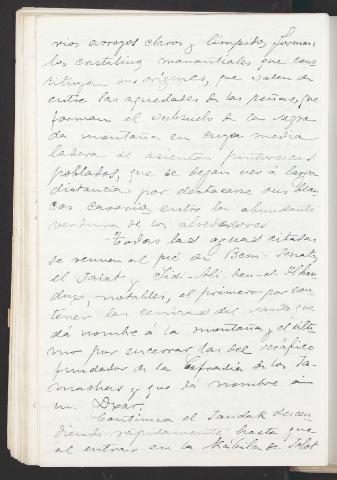 rios arroyos claros y limpidos, forman
los cristalinos manantiales que cons
tituyen sus orígenes, que salen de
entre las aguedades de las peñas, que
forman el subsuelo de la sagra
da montaña en cuya media
ladera se asientan pintorescos
poblados, que se dejan ver á larga
distancia por destacarse sus blan
cos caserios entre la abundante
verdura de los alrededores.
Todas las aguas citadas
se reunen al pié de Beni-
el y Sidi-Ali-ben-el
notables, el primero por con
tener las cenizas del santo que
dá nombre á la montaña y el ulti
mo por encerrar las del seráfico
fundador de la Cofradia de los Ja
machas y que dá nombre á
un Dxar.
Continua el descen
diendo rápidamente hasta que
al entrar en la Kábila de